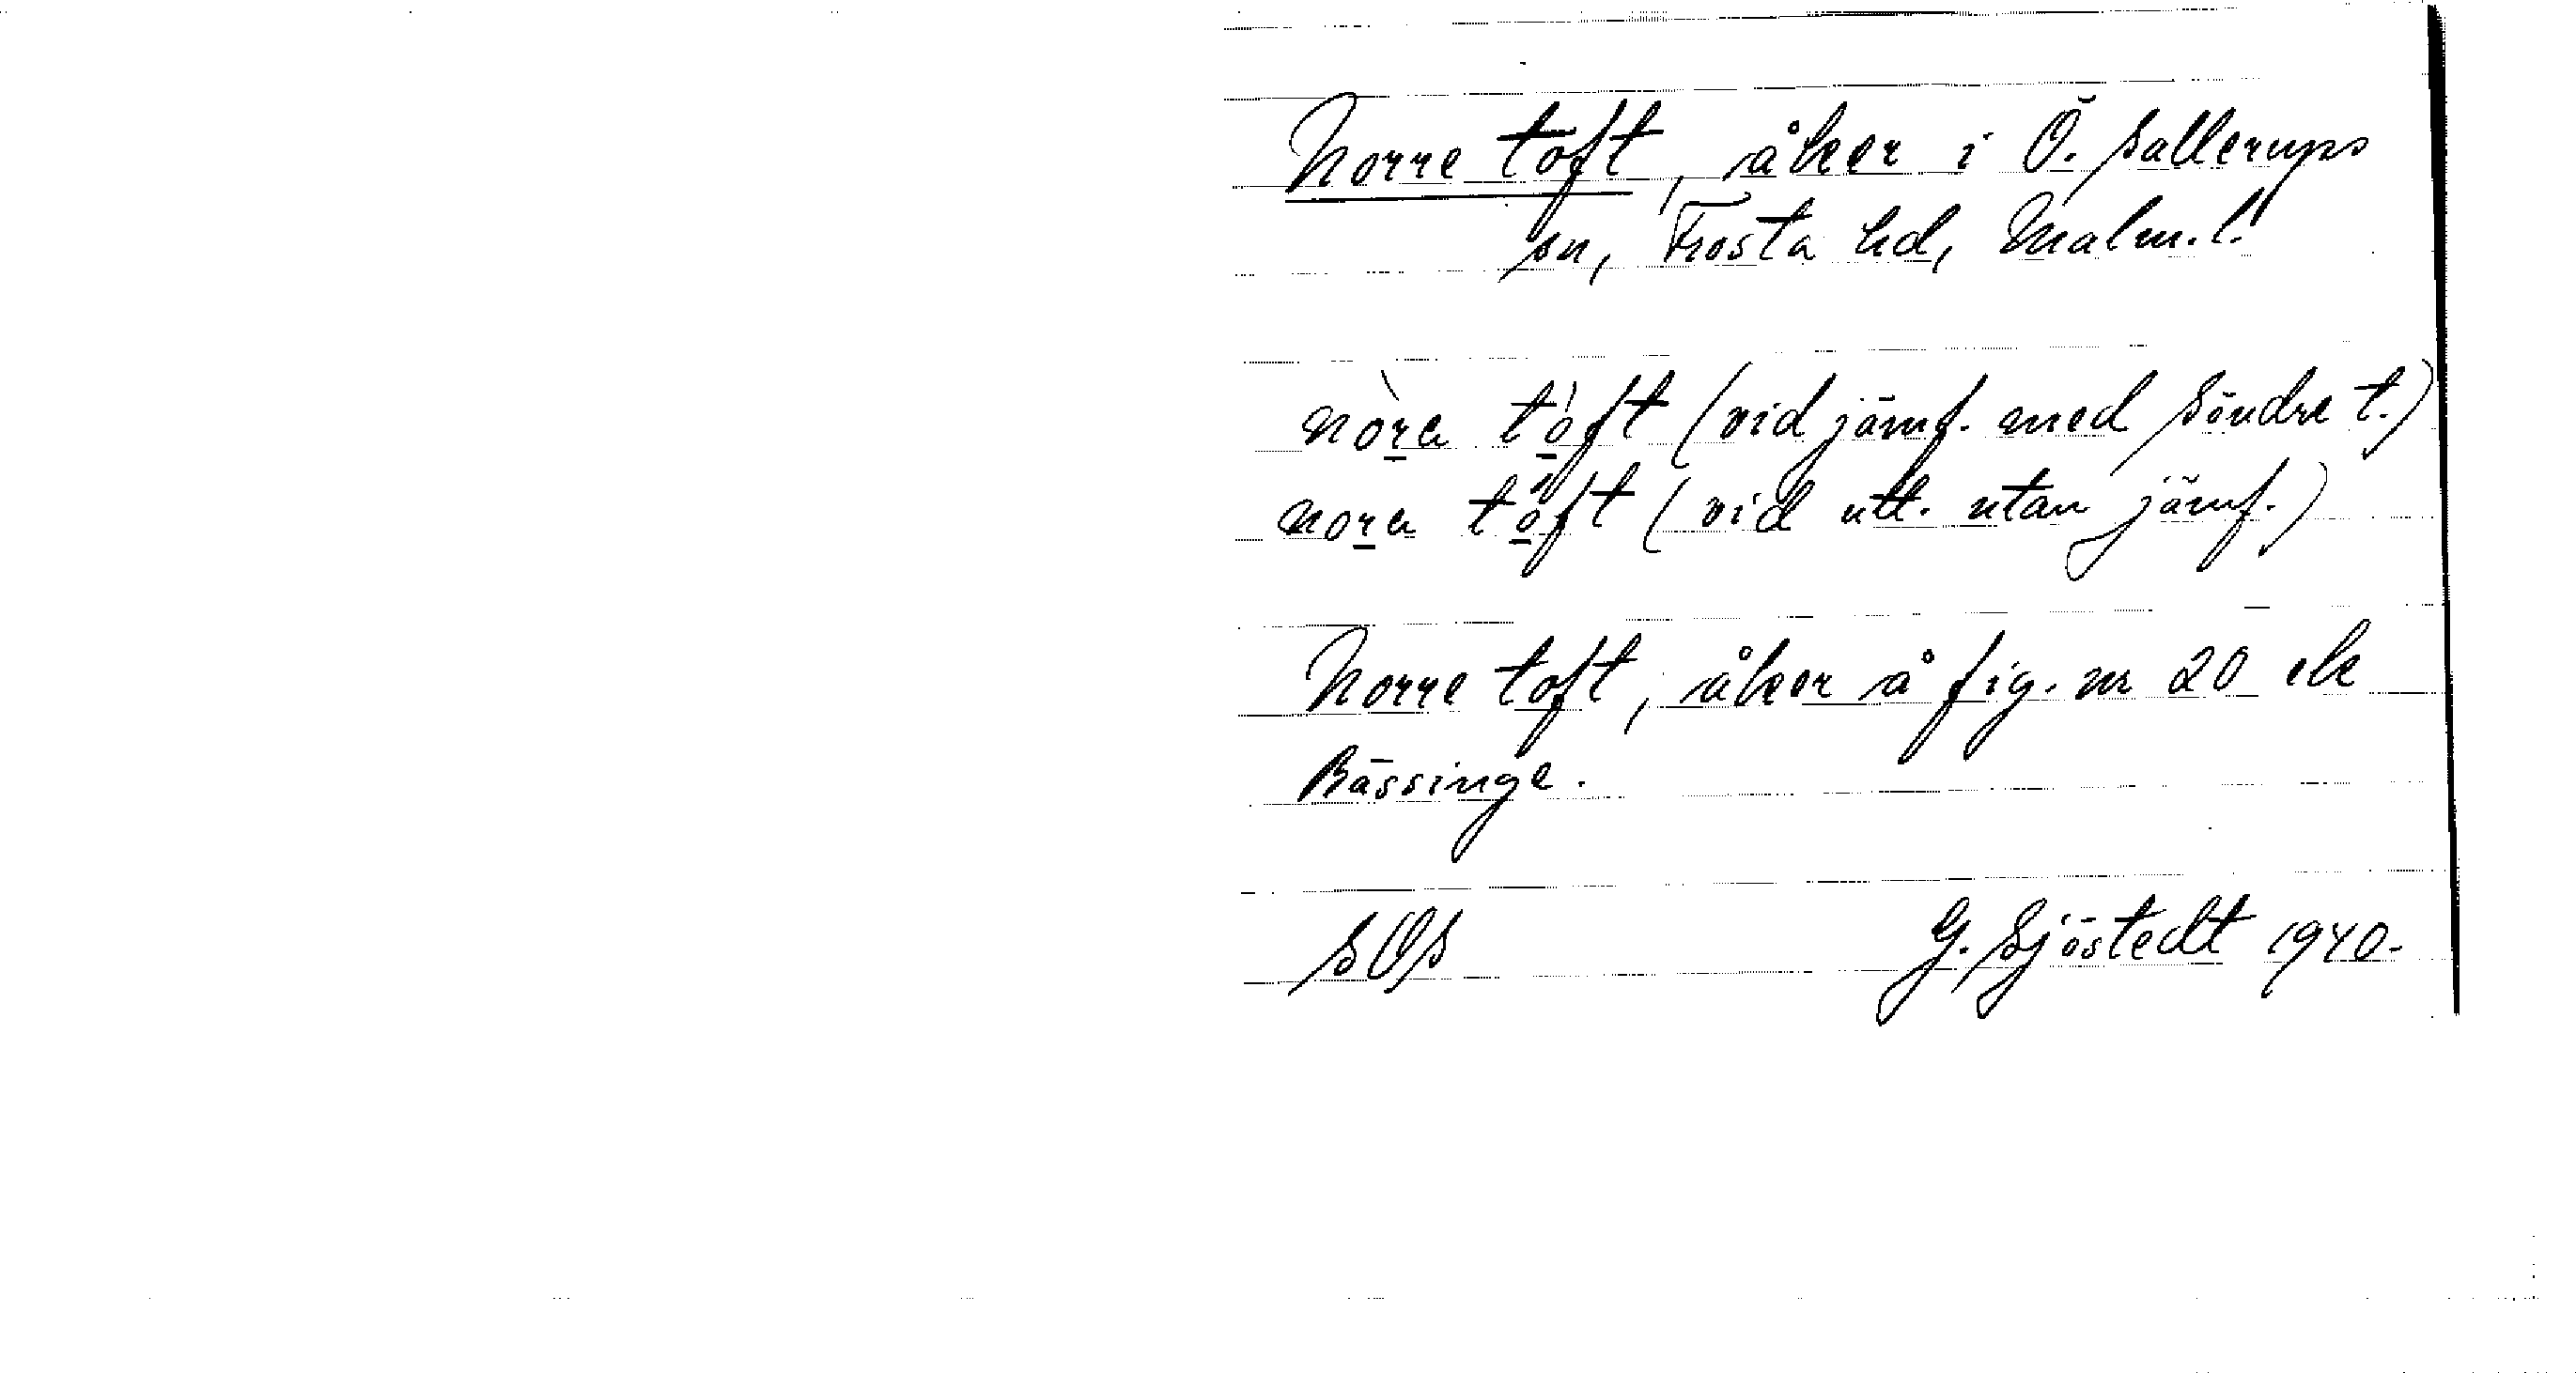 Norre toft, åker i Ö. Sallerups
sn, Frosta hd, Malm. l.
nòra tóft (vid jämf. med Söndre t.)
nora tőft (vid utt. utan jämf.)
Norre toft, åker å fig. nr 20 ek
Bässinge.
SOS G. Sjöstedt 1940.